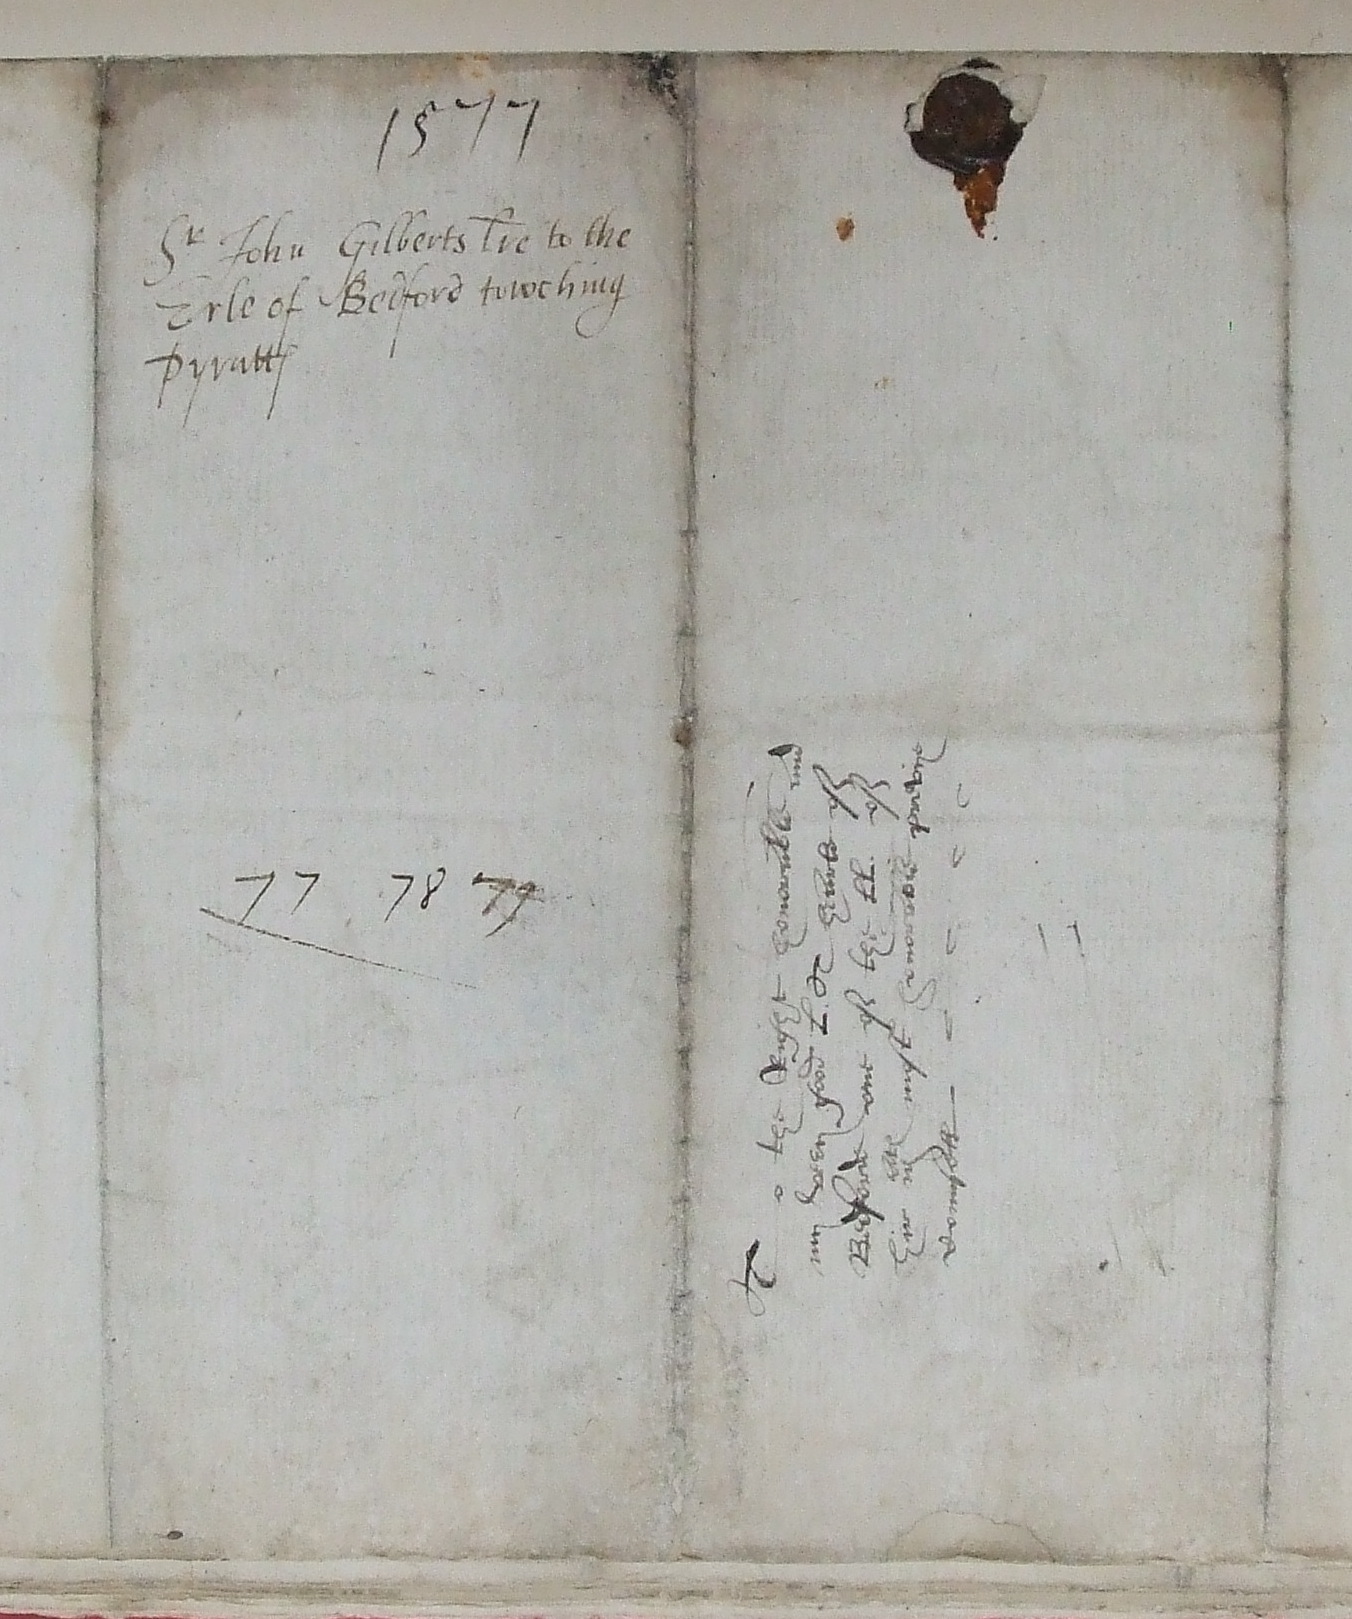 1577
Sr John Gilberts lre to the
Erle of Bedford towching
Pyratts
77 78 79
To the Right honorable and
my verey good L. the Earle of
Bedford one of the LL. of
her mats most honorable previe